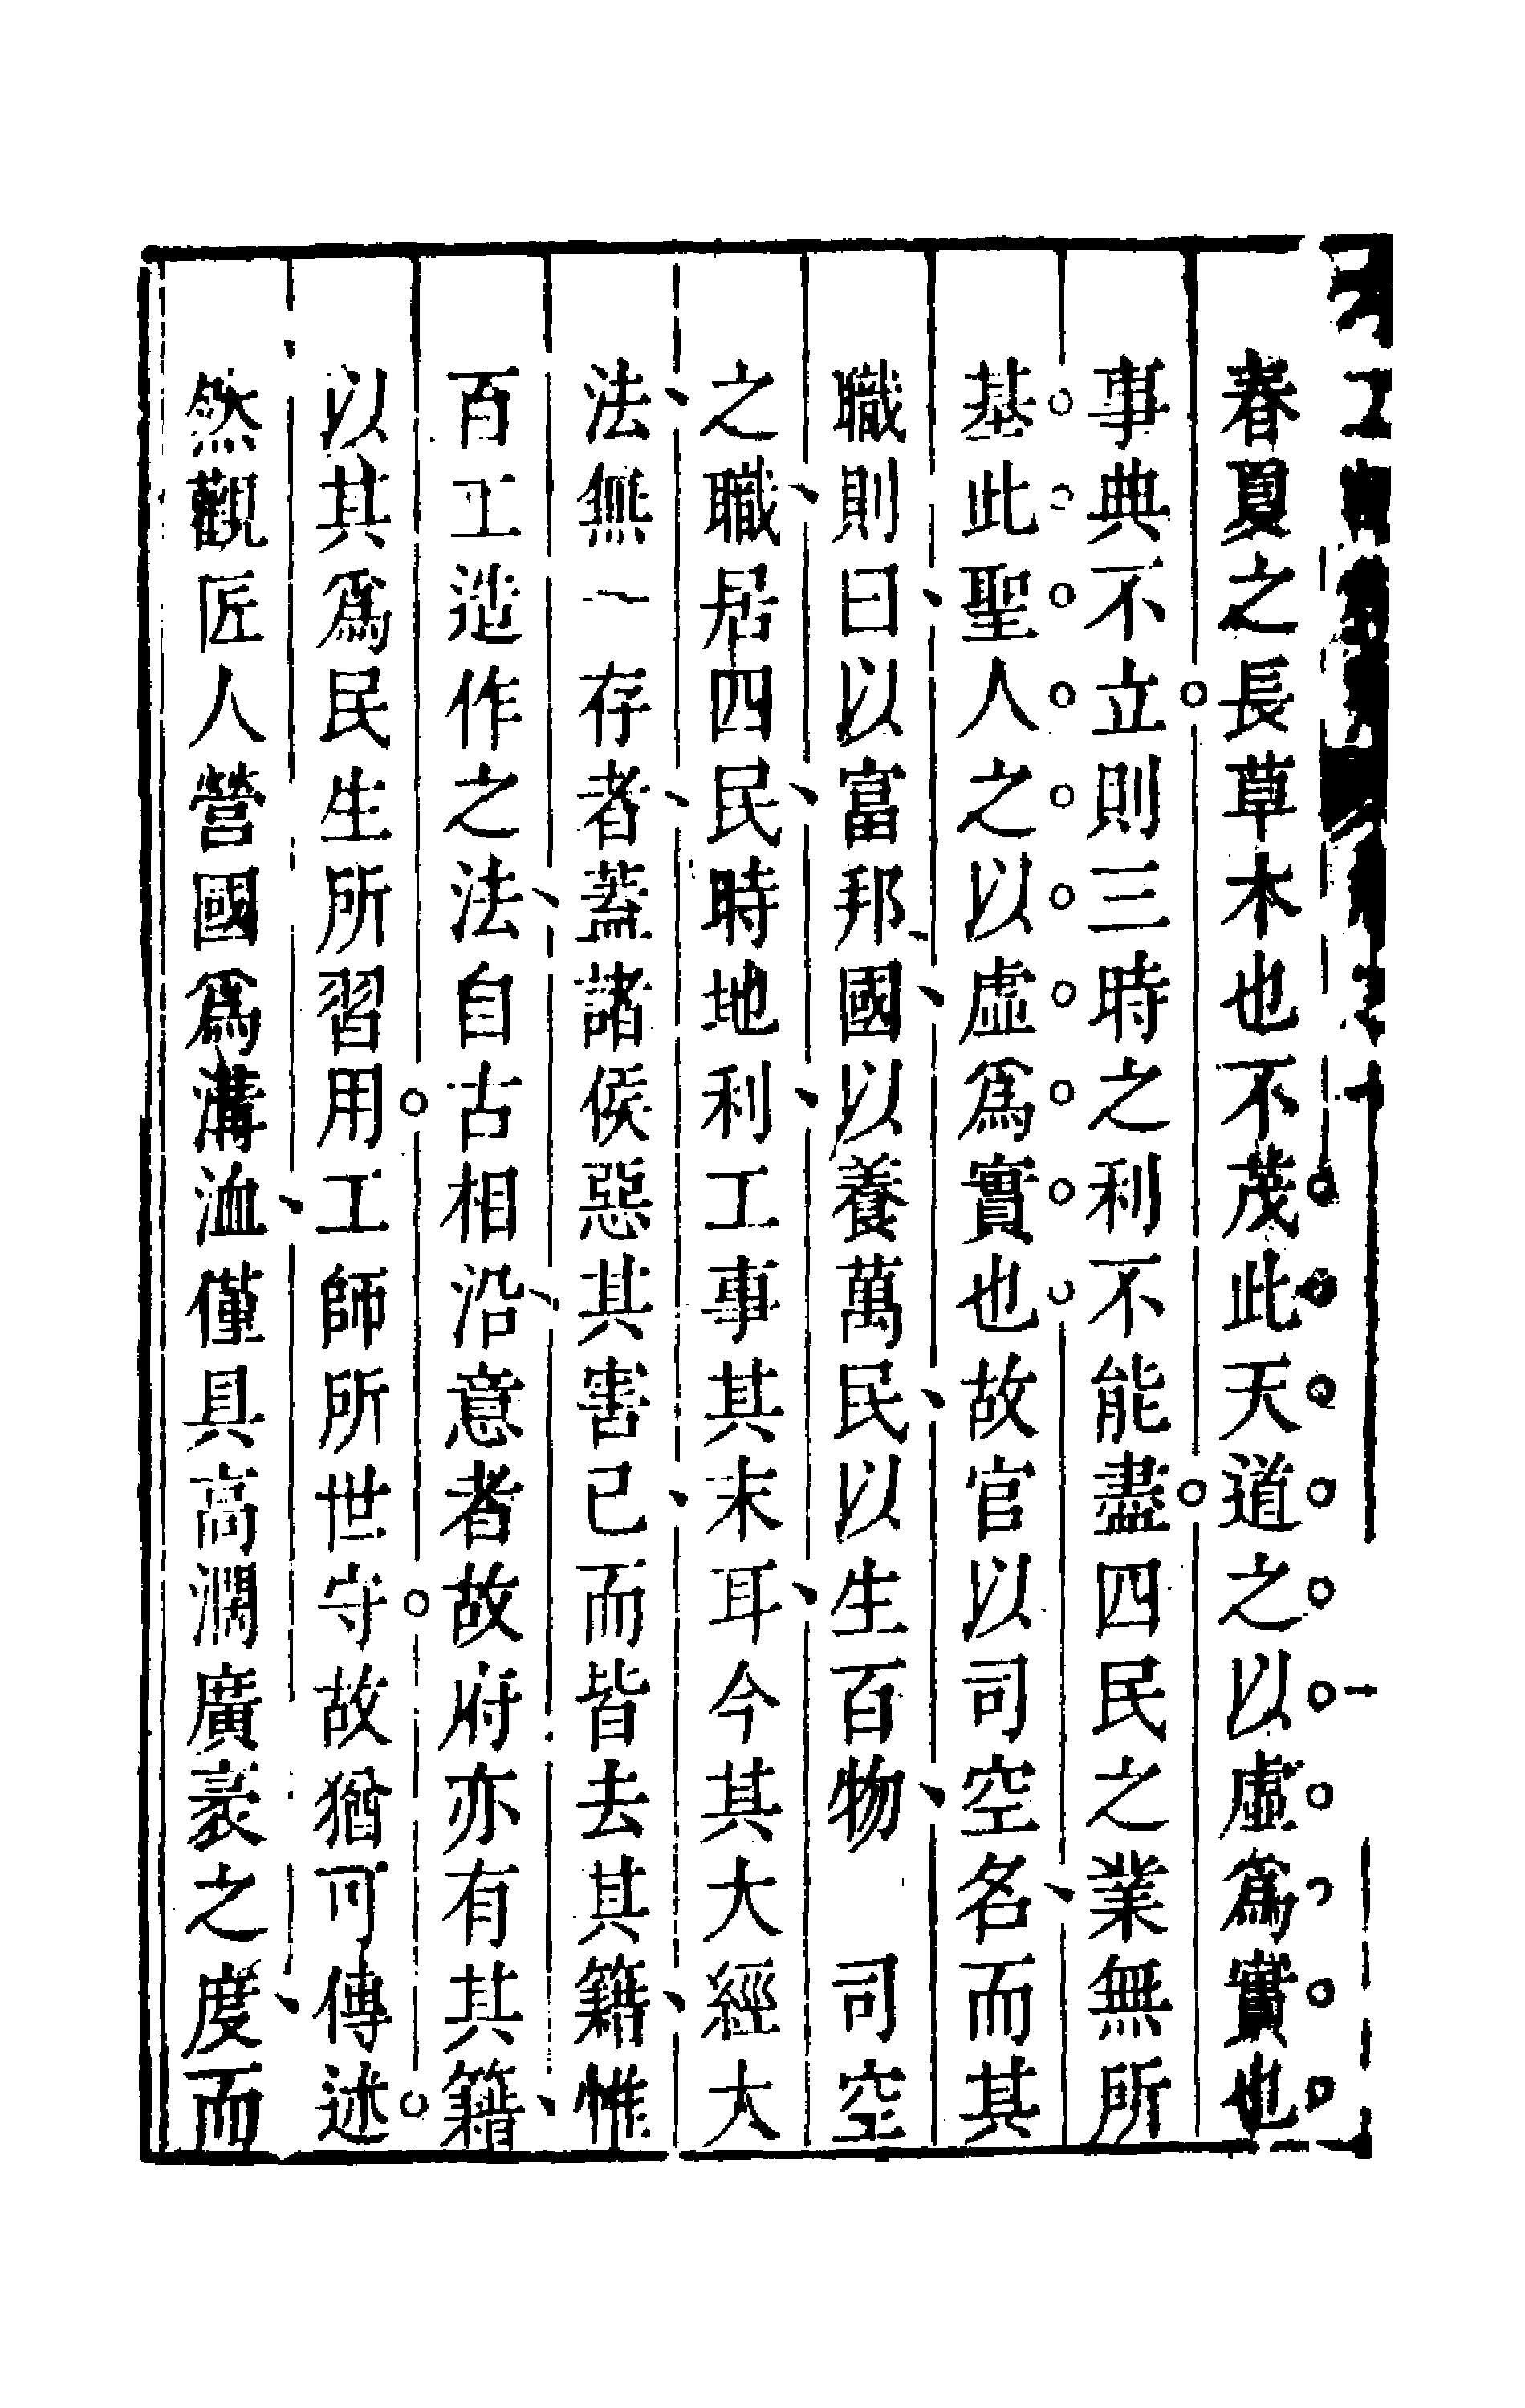 春夏之長草木也不茂此天道之以虛爲實也
事典不立則三時之利不能盡四民之業無所
基此聖人之以虛爲實也故官以司空名而其
職則曰以富邦國以養萬民以生百物　司空
之職居四民時地利工事其末耳今其大經大
法無一存者蓋諸侯惡其害己而皆去其籍惟
百工造作之法自古相沿意者故府亦有其籍
以其爲民生所習用工師所世守故猶可傳述
然觀匠人營國爲溝洫僅具高濶廣袤之度而